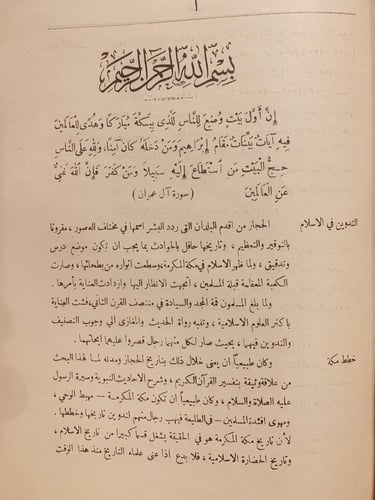 بسم الله الرحمن الرحيم
إِنَّ أَوَّلَ بَيْتٍ وُضِعَ لِلنَّاسِ لَلَّذِي بِبَكَّةَ مُبَارَكًا وَهُدًى لِلْعَالَمِينَ
فِيهِ آيَاتٌ بَيِّنَاتٌ مَقَامُ إِبْرَاهِيمَ وَمَنْ دَخَلَهُ كَانَ آمِنًا، وَلِلَّهِ عَلَى النَّاسِ
حِجُّ الْبَيْتِ مَنِ اسْتَطَاعَ إِلَيْهِ سَبِيلًا وَمَنْ كَفَرَ فَإِنَّ اللَّهَ غَنِيٌّ
عَنِ الْعَالَمِينَ ( سورة آل عمران )
التدوين في الاسلام
الحجاز من اقدم البلدان التى ردد البشر اسمها في مختلف العصور ، مقرونا
بالتوقير والتعظيم ، وتاريخها حافل بالحوادث بما يجب ان تكون موضع درس
وتدقيق ، ولما ظهر الاسلام في مكة المكرمة ، وسطعت انواره من بطحائها ، وصارت
الكعبة المعظمة قبلة المسلمين ، اتجهت الانظار اليها وازدادت العناية بأمرها .
ولما بلغ المسلمون قمة المجد والسيادة في منتصف القرن الثانى ، فشت العناية
باكثر العلوم الاسلامية ، وتنبه رواة الحديث والمغازى الى وجوب التصنيف
والتدوين فيهما ، بحيث صار لكل منهما رجال قصروا عليهما ابحاثهما .
خطط مكة
وكان طبيعياً ان يعنى خلال ذلك بتاريخ الحجاز ومدنه لما لهذا البحث
من علاقة وثيقة بتفسير القرآن الكريم ، وشرح الاحاديث النبوية وسيرة الرسول
عليه الصلاة والسلام ، وكان طبيعياً أن تكون مكة المكرمة – مهبط الوحي ،
ومهوى افئدة المسلمين – في الطليعة فيهب رجال منهم لتدوين تاريخها وخططها .
لأن تاريخ مكة المكرمة هو في الحقيقة يشغل قسما كبيرا من تاريخ الاسلام ،
وتاريخ الحضارة الاسلامية ، فلا بدع اذا عنى علماء التاريخ منذ هذا الوقت